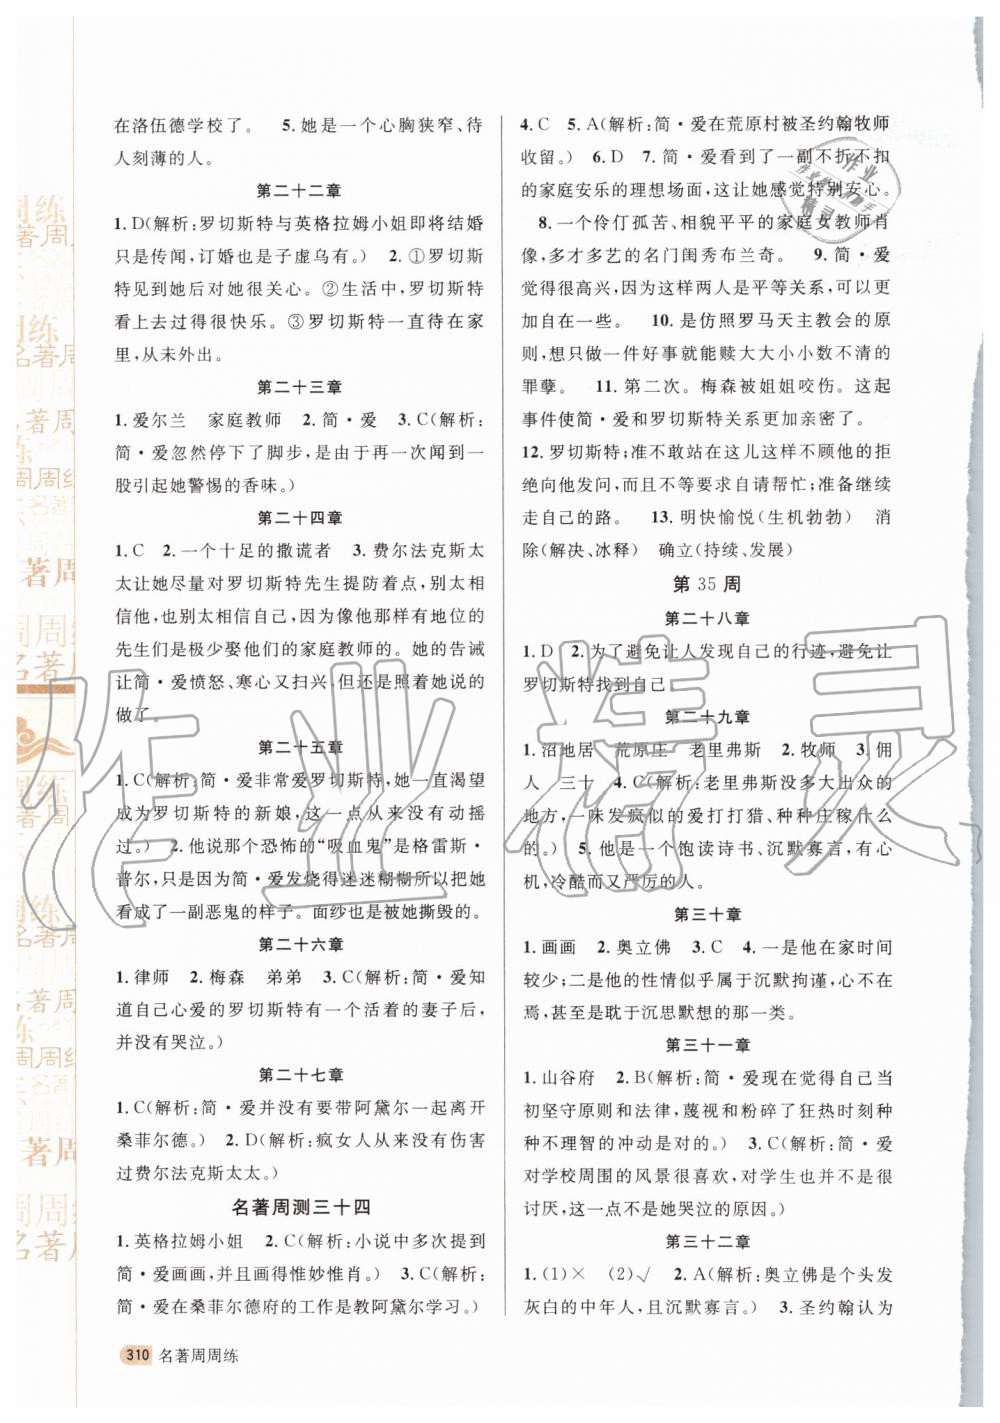 在洛伍德学校了。 5.她是一个心胸狭窄、待
人刻薄的人。
第二十二章
1. D(解析:罗切斯特与英格拉姆小姐即将结婚
只是传闻,订婚也是子虚乌有。) 2.①罗切斯
特见到她后对她很关心。②生活中,罗切斯特
看上去过得很快乐。③罗切斯特一直待在家
里,从未外出。
第二十三章
1.爱尔兰 家庭教师 2.简·爱 3. C(解析:
简·爱突然停下了脚步,是因为再一次闻到了一
股引起她警惕的香味。)
第二十四章
1. C 2.一个十足的撒谎者 3.费尔法克斯太
太让她尽量对罗切斯特先生提防着点,别太相
信他,也别太相信自己。因为像他那样有地位的
先生们是极少娶他们的家庭教师的。她的告诫
让简·爱愤怒、寒心又扫兴,但还是照着她说的
做了。
第二十五章
1. C(解析:简·爱非常爱罗切斯特,她一直渴望
成为罗切斯特的新娘,这一点从来没有动摇
过。) 2.他说那个恐怖的“吸血鬼”是格雷斯·
普尔,只是因为简·爱发烧得迷迷糊糊所以把她
看成了一副恶鬼的样子。面纱也是被她撕毁的。
第二十六章
1.律师 2.梅森 弟弟 3. C(解析:简·爱知
道自己心爱的罗切斯特有一个活着的妻子后,
并没有哭泣。)
第二十七章
1. C(解析:简·爱并没有要带阿黛尔一起离开
桑菲尔德。) 2. D(解析:疯女人从来没有伤害
过费尔法克斯太太。)
名著周测三十四
1.英格拉姆小姐 2. C(解析:小说中多次提到
简·爱画画,并且画得惟妙惟肖。) 3. C(解析:
简·爱在桑菲尔德府的工作是教阿黛尔学习。)
4. C 5. A(解析:简·爱在荒原村被圣约翰牧师
收留。) 6. D 7.简·爱看到了一副不折不扣
的家庭安乐的理想场面,这让她感觉特别安心。
8.一个伶仃孤苦、相貌平平的家庭女教师肖
像,多才多艺的名门闺秀布兰奇。 9.简·爱
觉得很高兴,因为这样两人是平等关系,可以更
自在一些。 10.是仿照罗马天主教会的原
则,想只做一件好事就能赎大大小小数不清的
罪孽。 11.第二次。梅森被姐姐咬伤。这起
事件使简·爱和罗切斯特关系更加亲密了。
12.罗切斯特;准不敢站在这儿这样不顾他的拒
绝向他发问,而且还要求自请帮忙;准备继续
走自己的路。 13.明快愉悦(生机勃勃) 消
除(解决、冰释) 确立(持续、发展)
第 35 周
第二十八章
1. D 2.为了避免让人发现自己的行迹,避免让
罗切斯特找到自己。
第二十九章
1.沼地居 荒原庄 老里弗斯 2.牧师 3.佣
人 三十 4. C(解析:老里弗斯没多大出众的
地方,一味发疯似的爱打打猎、种种庄稼什么
的。) 5.他是一个饱读诗书、沉默寡言,有心
机,冷酷而又严厉的人。
第三十章
1.画画 2.奥立佛 3. C 4.一是他在家时间
较少;二是他的性情似乎属于沉默拘谨,心不在
焉,甚至是耽于沉思默想的那一类。
第三十一章
1.山谷府 2. B(解析:简·爱现在觉得自己当
初坚守原则和法律,蔑视和粉碎了狂热时刻种
种不理智的冲动是对的。) 3. C(解析:简·爱
对学校周围的风景很喜欢,对学生也并不是很
讨厌,这一点不是她哭泣的原因。)
第三十二章
1.(1)× (2)√ 2. A(解析:奥立佛是个头发
灰白的中年人,且沉默寡言。) 3.圣约翰认为
310 名著周周练
作业精灵